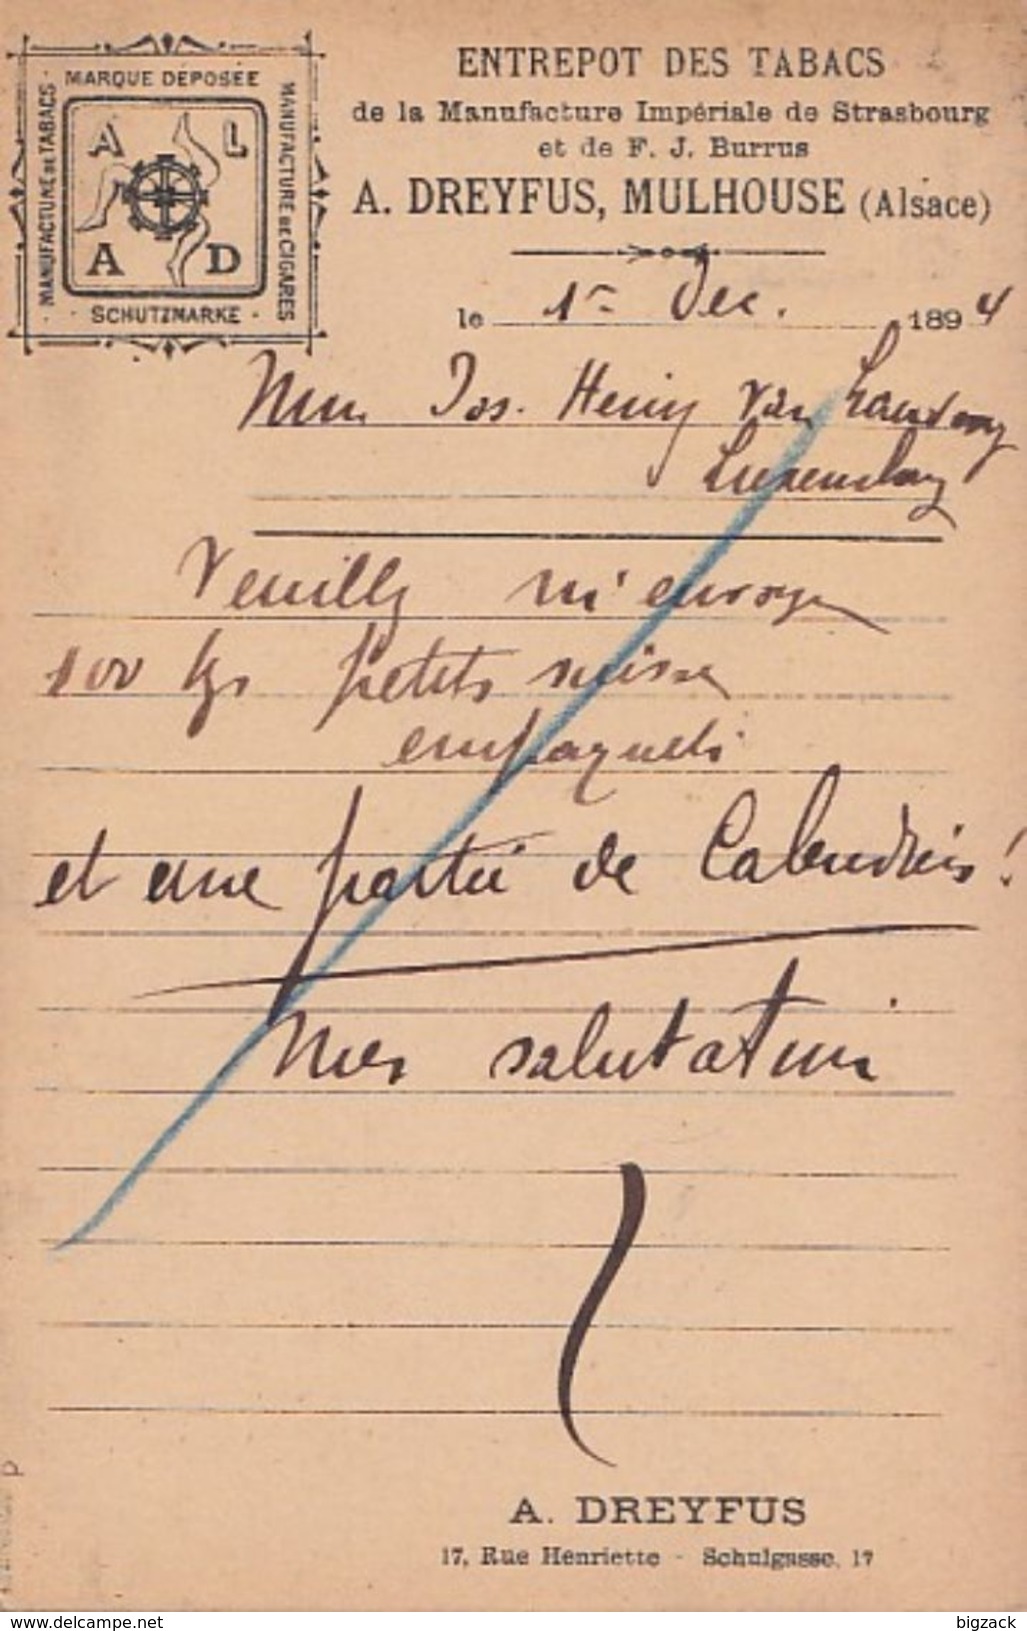 MARQUE DÉPOSÉE
MANUFACTURE DE TABACS
MANUFACTURE DE CIGARES
A L
A D
SCHUTZMARKE
ENTREPOT DES TABACS
de la Manufacture Impériale de Strasbourg
et de F. J. Burrus
A. DREYFUS, MULHOUSE (Alsace)
le 1er Dec. 1894
Jos. Heinz van
Luxembourg
Veuillez m'envoyer
100 kgs petits suisse
empaquetés
et une partie de Calendriers!
Mes salutations
A. DREYFUS
17, Rue Henriette - Schulgasse, 17
delcampe.net
bigzack